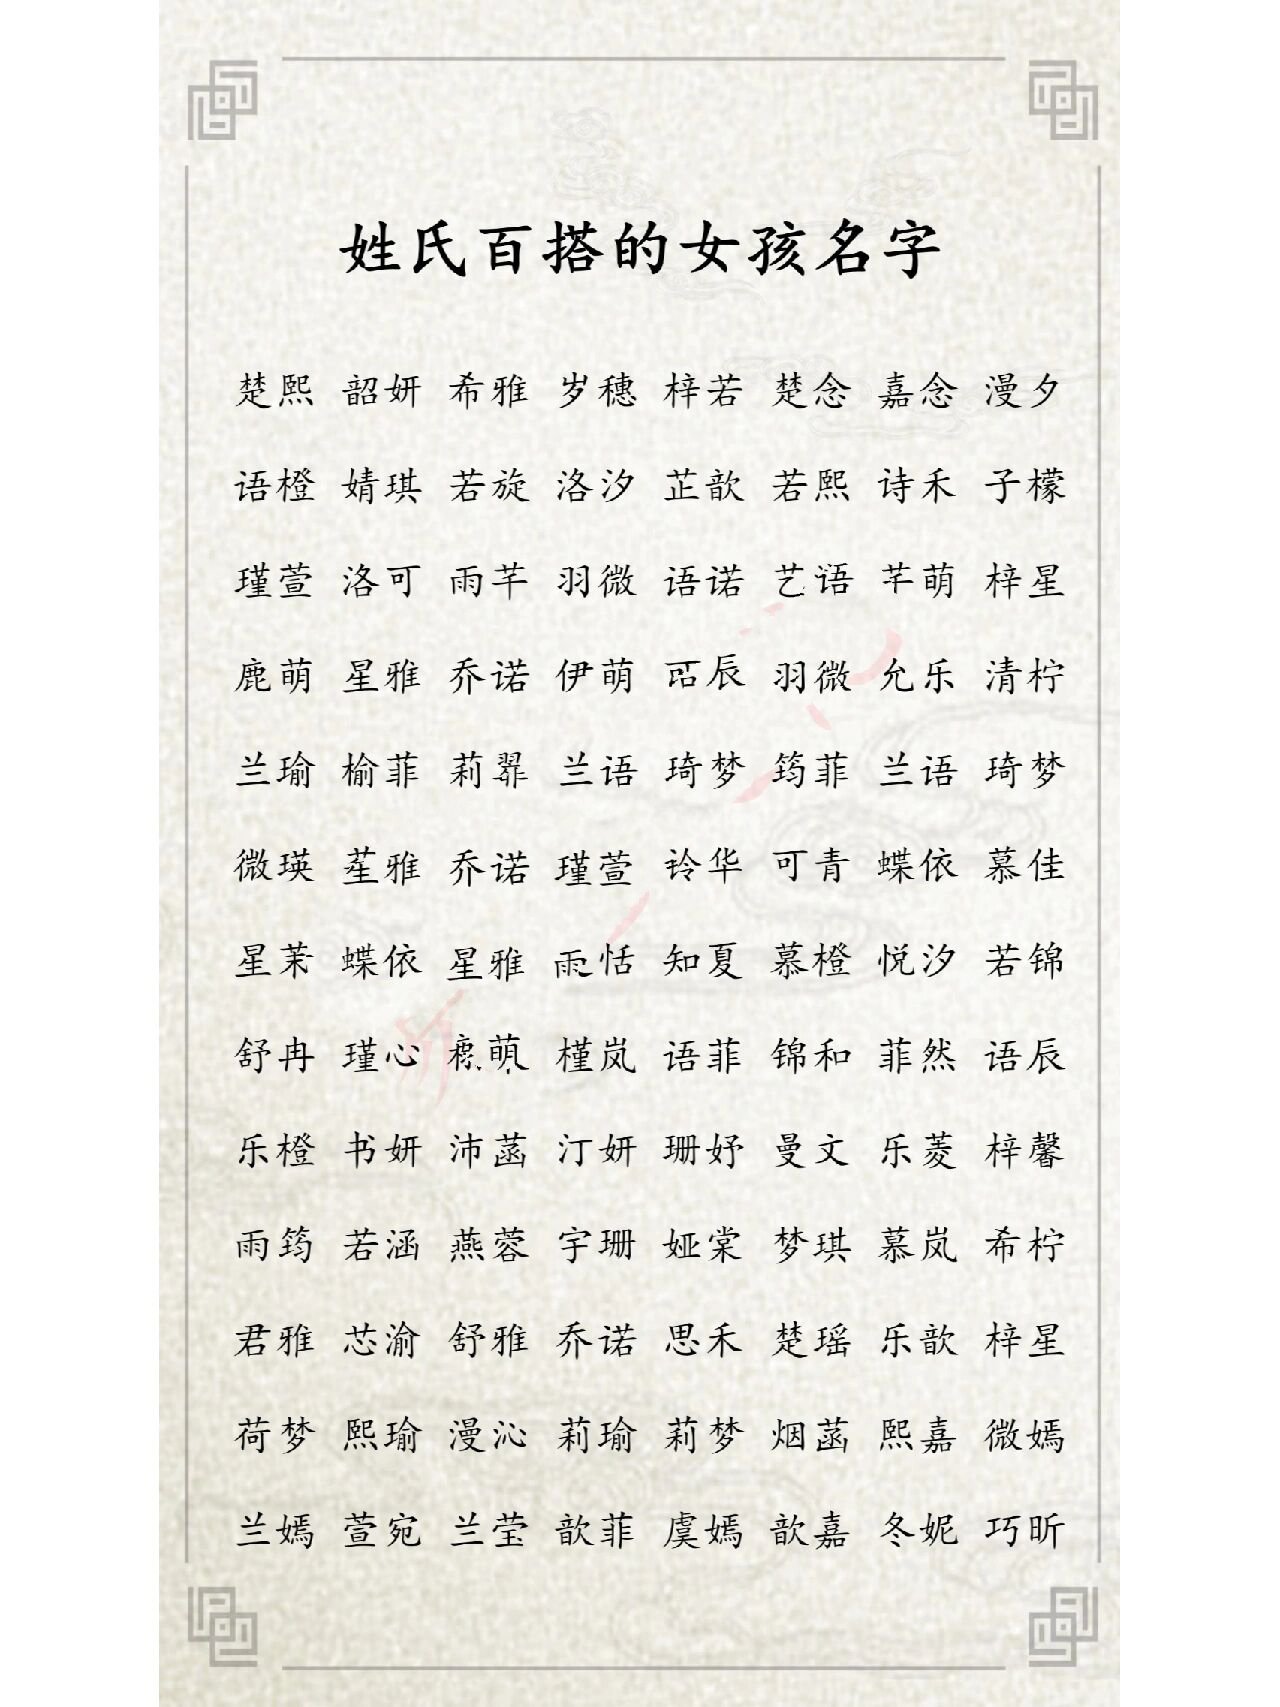 姓氏百搭的女孩名字
楚熙 韶妍 希雅 岁穗 梓若 楚念 嘉念 漫夕
语橙 婧琪 若旋 洛汐 芷歆 若熙 诗禾 子檬
瑾萱 洛可 雨芊 羽微 语诺 艺语 芊萌 梓星
鹿萌 星雅 乔诺 伊萌 辰 羽微 允乐 清柠
兰瑜 榆菲 莉 兰语 琦梦 筠菲 兰语 琦梦
微瑛 雅 乔诺 瑾萱 铃华 可青 蝶依 慕佳
星茉 蝶依 星雅 雨恬 知夏 慕橙 悦汐 若锦
舒冉 瑾心 萌 槿岚 语菲 锦和 菲然 语辰
乐橙 书妍 沛菡 汀妍 珊妤 曼文 乐菱 梓馨
雨筠 若涵 燕蓉 宇珊 娅棠 梦琪 慕岚 希柠
君雅 芯渝 舒雅 乔诺 思禾 楚瑶 乐歆 梓星
荷梦 熙瑜 漫沁 莉瑜 莉梦 烟菡 熙嘉 微嫣
兰嫣 萱宛 兰莹 歆菲 虞嫣 歆嘉 冬妮 巧昕